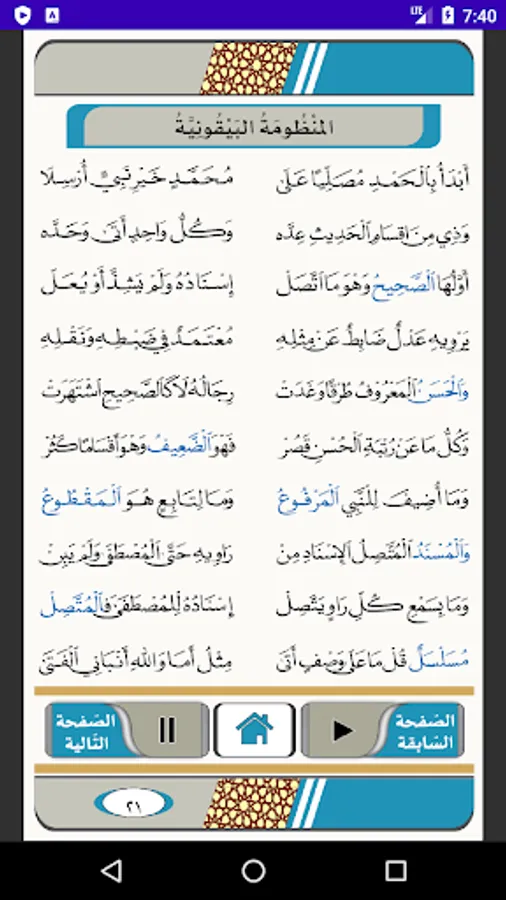 LTE 7:40
المَنْظُومَةُ البَيْقُونِيَّةُ
أَبْدَأُ بِالْحَمْدِ مُصَلِّيًا عَلَى مُحَمَّدٍ خَيْرِ نَبِيٍّ أُرْسِلَا
وَذِي مِنَ اقْسَامِ الْحَدِيثِ عِدَّه وَكُلُّ وَاحِدٍ أَتَى وَحَدَّه
أَوَّلُهَا الصَّحِيحُ وَهْوَ مَا اتَّصَلْ إِسْنَادُهُ وَلَمْ يَشِذَّ أَوْ يُعَلْ
يَرْوِيهِ عَدْلٌ ضَابِطٌ عَنْ مِثْلِهِ مُعْتَمَدٌ فِي ضَبْطِهِ وَنَقْلِهِ
وَالْحَسَنُ الْمَعْرُوفُ طُرْقًا وَغَدَتْ رِجَالُهُ لَا كَالصَّحِيحِ اشْتَهَرَتْ
وَكُلُّ مَا عَنْ رُتْبَةِ الْحُسْنِ قَصُرْ فَهْوَ الضَّعِيفُ وَهْوَ أَقْسَامًا كَثُرْ
وَمَا أُضِيفَ لِلنَّبِي الْمَرْفُوعُ وَمَا لِتَابِعٍ هُوَ الْمَقْطُوعُ
وَالْمُسْنَدُ الْمُتَّصِلُ الْإِسْنَادِ مِنْ رَاوِيهِ حَتَّى الْمُصْطَفَى وَلَمْ يَبِنْ
وَمَا بِسَمْعِ كُلِّ رَاوٍ يَتَّصِلْ إِسْنَادُهُ لِلْمُصْطَفَى فَالْمُتَّصِلْ
مُسَلْسَلٌ قُلْ مَا عَلَى وَصْفٍ أَتَى مِثْلُ أَمَا وَاللهِ أَنْبَانِي الْفَتَى
الصّفحة السّابقة
الصّفحة التّالية
٢١